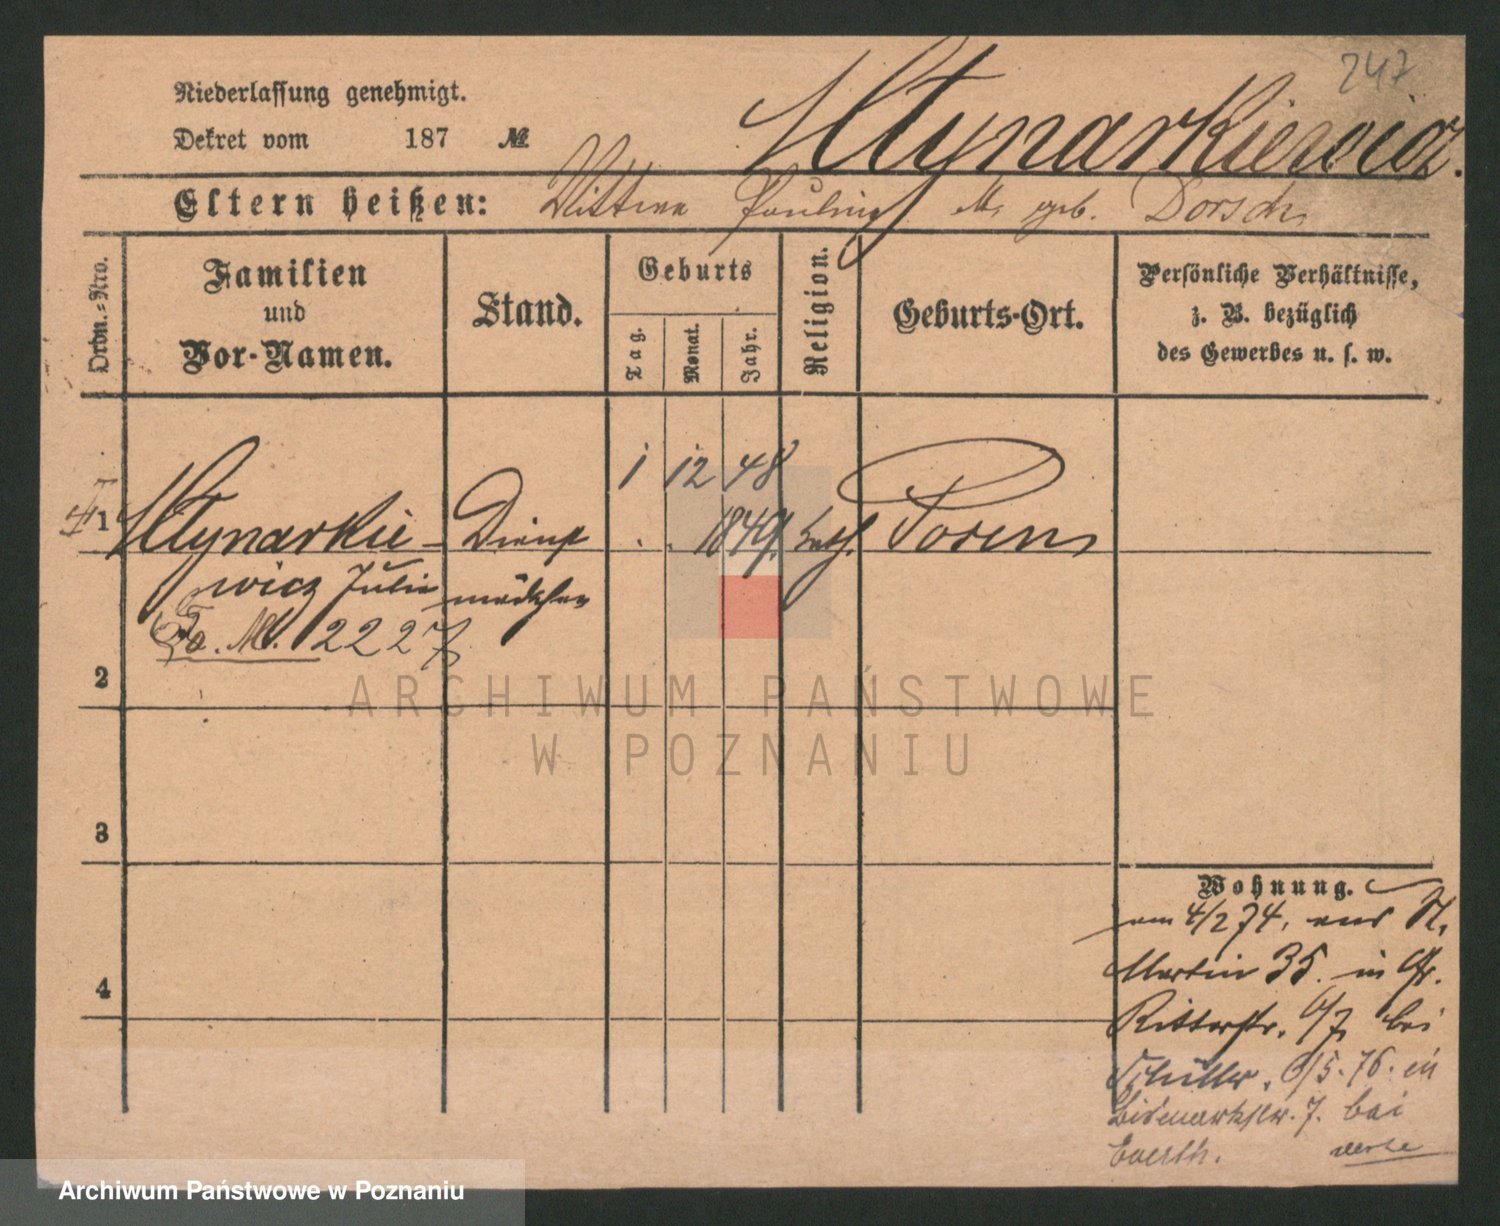 247
Niederlassung genehmigt.
Dekret vom 187 №
Młynarkiewicz.
Eltern heißen: Wittwe Pauline M. geb. Dorsch
Ordn.-Nro.
Familien und Vor-Namen.
Stand.
Geburts
Tag. Monat. Jahr.
Religion.
Geburts-Ort.
Persönliche Verhältnisse,
z. B. bezüglich
des Gewerbes u. s. w.
1 12 48
1 Młynarkie- Dienst . . 1849. kath. Posen
wicz Julie mädchen
2227
2
3
4
Wohnung.
am 4/2 74. aus St.
Martin 35. in Gr.
Ritterstr. 6/7 bei
6/5. 76. in
Bismarkstr. 7. bei
ARCHIWUM PAŃSTWOWE
W POZNANIU
Archiwum Państwowe w Poznaniu